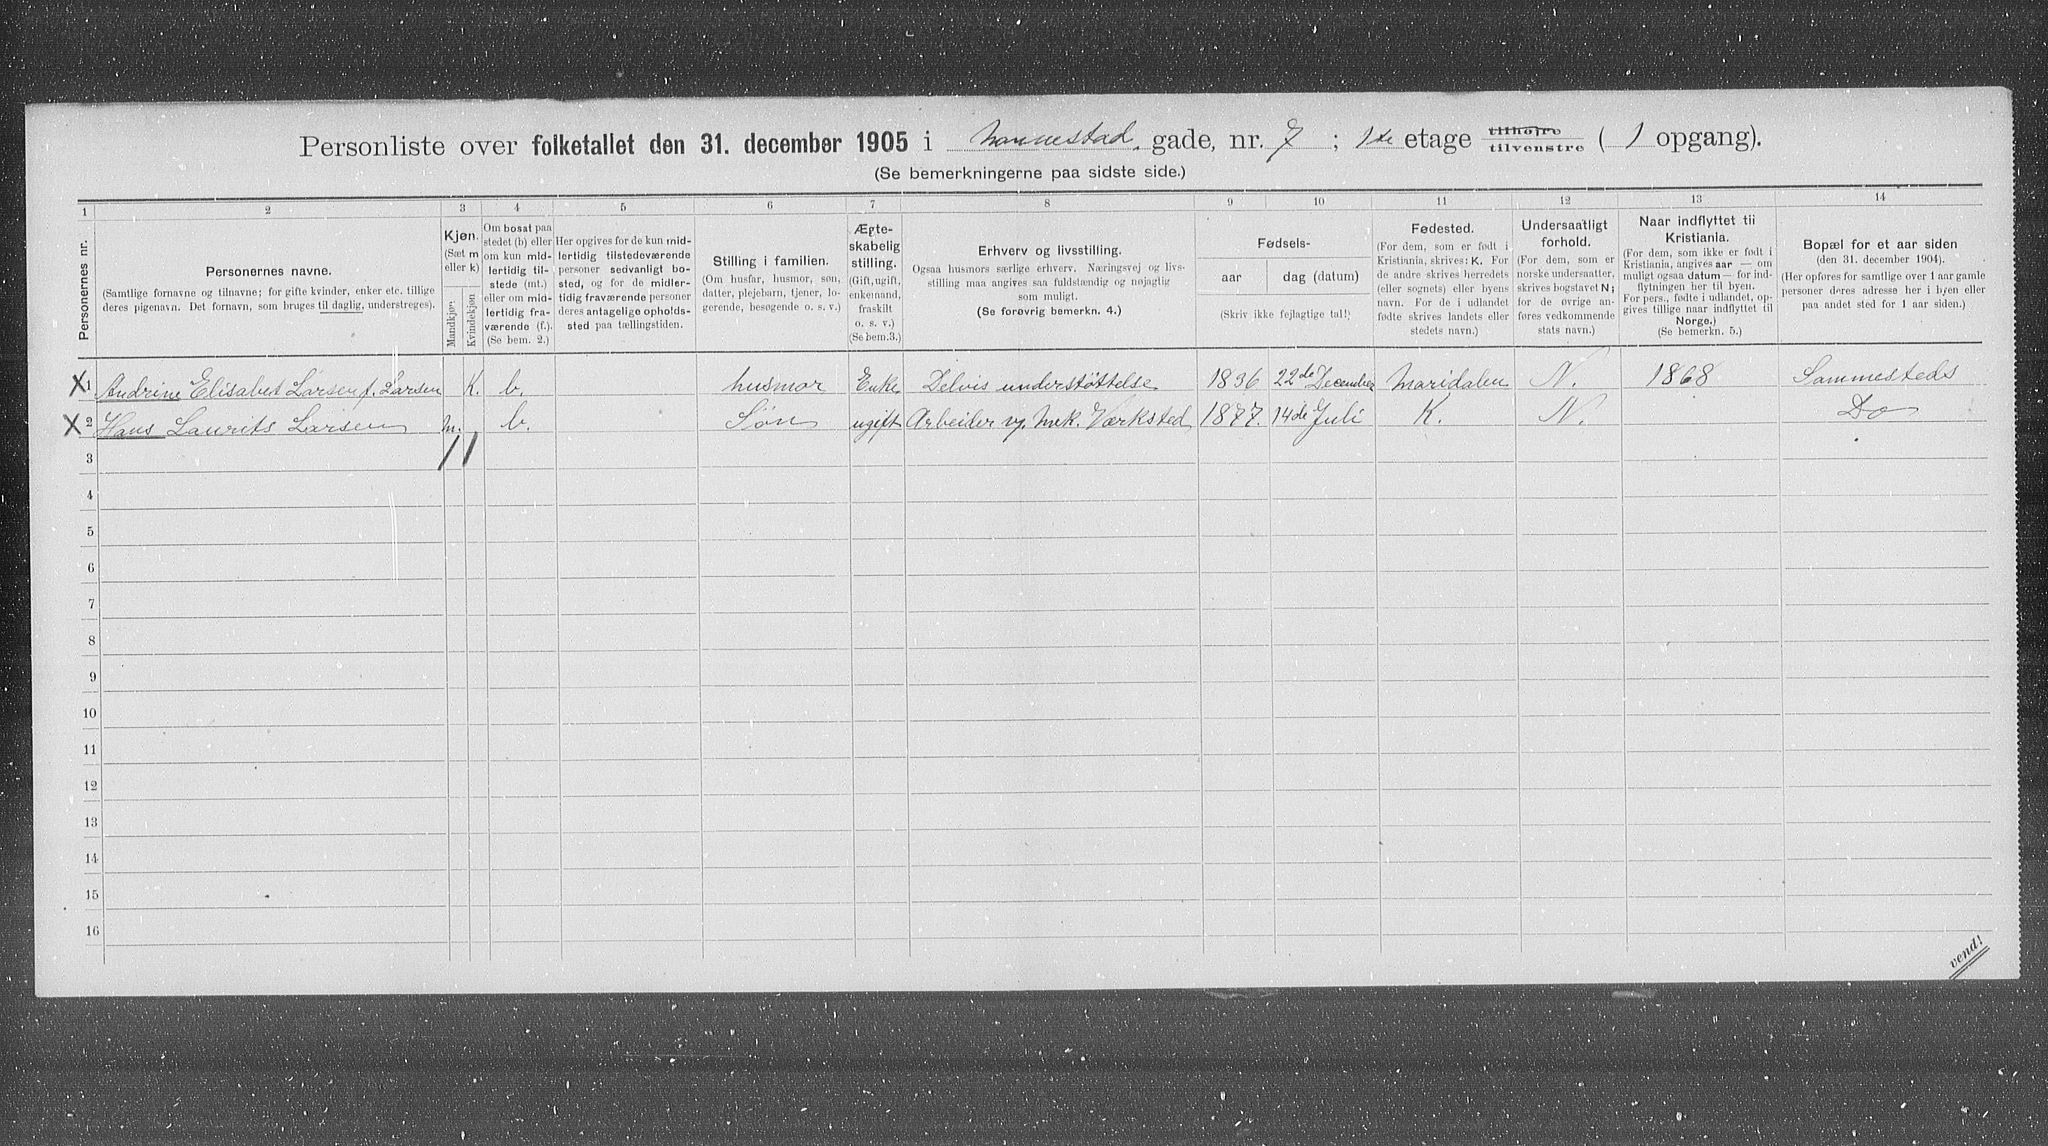 Personliste over folketallet den 31. december 1905 i Nannestad. gade, nr. 7 ; 1ste etage tilhøire tilvenstre ( 1 opgang).
(Se bemerkningerne paa sidste side.)
1 2 3 4 5 6 7 8 9 10 11 12 13 14
Personernes nr.
Personernes navne.
(Samtlige fornavne og tilnavne; for gifte kvinder, enker etc. tillige
deres pigenavn. Det fornavn, som bruges til daglig, understreges).
Kjøn.
(Sæt m
eller k)
Mandkjøn.
Kvindekjøn
Om bosat paa
stedet (b) eller
om kun midlertidig
tilstede (mt.)
eller om midlertidig
fraværende (f.).
(Se bem. 2.)
Her opgives for de kun midlertidig
tilstedeværende
personer sedvanligt bosted,
og for de midlertidig
fraværende personer
deres antagelige opholdssted
paa tællingstiden.
Stilling i familien.
(Om husfar, husmor, søn,
datter, plejebarn, tjener, logerende,
besøgende o. s. v.)
Ægteskabelig
stilling.
(Gift, ugift,
enkemand,
fraskilt
o. s. v.)
(Se bem. 3.)
Erhverv og livsstilling.
Ogsaa husmors særlige erhverv. Næringsvej og livsstilling
maa angives saa fuldstændig og nøjagtig
som muligt.
(Se forøvrig bemerkn. 4.)
Fødsels-
aar dag (datum)
(Skriv ikke fejlagtige tal!)
Fødested.
(For dem, som er født i
Kristiania, skrives: K. For
de andre skrives herredets
(eller sognets) eller byens
navn. For de i udlandet
fødte skrives landets eller
stedets navn.)
Undersaatligt
forhold.
(For dem, som er
norske undersaatter,
skrives bogstavet N;
for de øvrige anføres
vedkommende
stats navn.)
Naar indflyttet til
Kristiania.
(For dem, som ikke er født i
Kristiania, angives aar — om
muligt ogsaa datum — for indflytningen
her til byen.
For pers., fødte i udlandet, opgives
tillige naar indflyttet til
Norge.)
(Se bemerkn. 5.)
Bopæl for et aar siden
(den 31. december 1904).
(Her opføres for samtlige over 1 aar gamle
personer deres adresse her i byen eller
paa andet sted for 1 aar siden.)
X 1 Andrine Elisabet Larsen f. Larsen K. b. husmor Enke Delvis understøttelse 1836 22de December Maridalen N. 1868 Sammesteds
X 2 Hans Laurits Larsen m. b. Søn ugift Arbeider v. Mek. Værksted 1877. 14de Juli K. N. Do
3 1 1
4
5
6
7
8
9
10
11
12
13
14
15
16
vend!